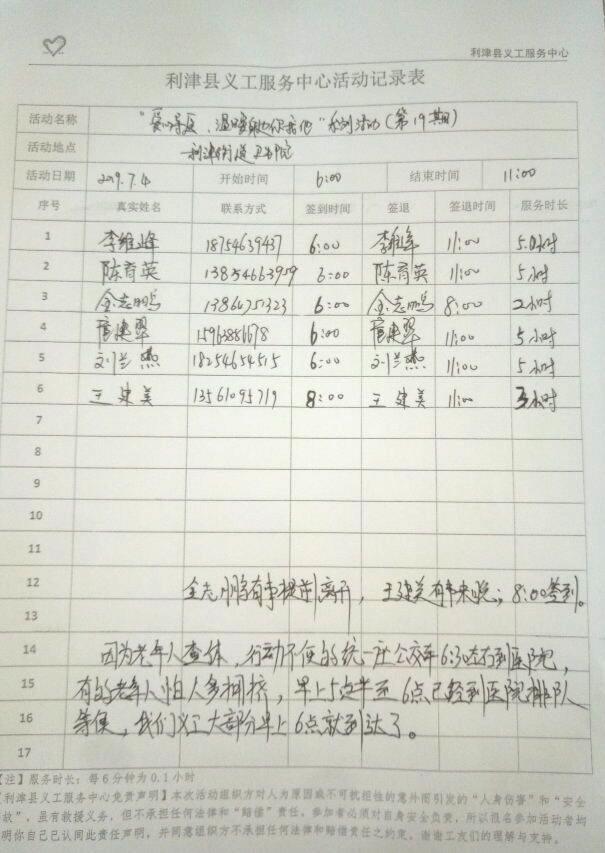 利津县义工服务中心
利津县义工服务中心活动记录表
活动名称 "爱心导医、温暖 你我他"系列活动(第19期)
活动地点 利津街道卫生院
活动日期 2019.7.4 开始时间 6:00 结束时间 11:00
序号 真实姓名 联系方式 签到时间 签退 签退时间 服务时长
1 李维峰 18754639437 6:00 李维峰 11:00 5.0小时
2 陈育英 13854663959 6:00 陈育英 11:00 5小时
3 金志鹏 13864751323 6:00 金志鹏 8:00 2小时
4 15962881678 6:00 11:00 5小时
5 刘兰燕 18254654515 6:00 刘兰燕 11:00 5小时
6 王建美 13561095719 8:00 王建美 11:00 3小时
7
8
9
10
11
12 金志鹏有事提前离开,王建美有事来晚;8:00签到。
13
14 因为老年人查体,行动不便的统一座公交车6:30左右到医院,
15 有的老年人怕人多拥挤,早上5点半至6点已经到医院排队
16 等候,我们义工大部分早上6点就到达了。
17
【注】服务时长:每6分钟为0.1小时
利津县义工服务中心免责声明】本次活动组织方对人为原因或不可抗拒性的意外而引发的"人身伤害"和"安全
故",虽有救援义务,但不承担任何法律和"赔偿"责任。参加者必须对自身安全负责,所以报名参加活动者均
明你自己已认同此责任声明,并同意组织方不承担任何法律和赔偿责任之约束。谢谢工友们的理解与支持。